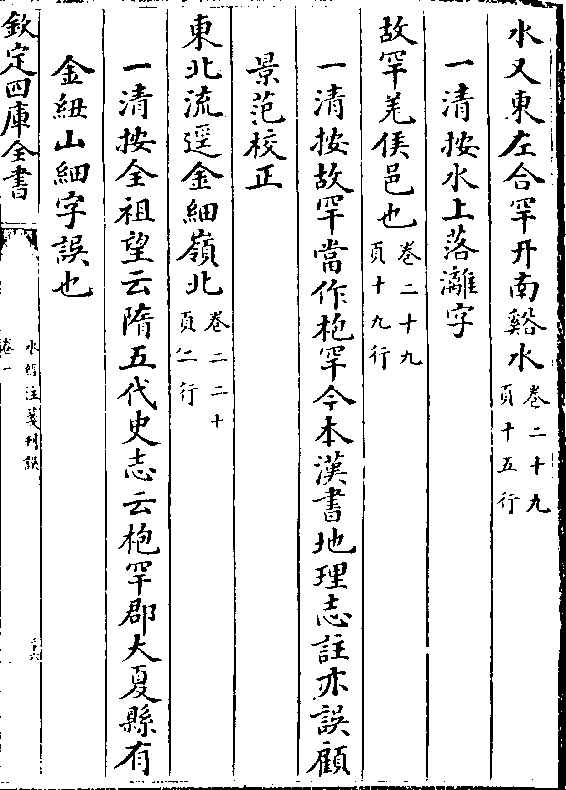 水又東左合罕幵南谿水卷二十九頁十五行
一清按水上落灕字
故罕羌侯邑也卷二十九頁十九行
一清按故罕當作枹罕今本漢書地理志註亦誤顧
景范校正
東北流逕金細嶺北卷二二十頁二行
一清按全祖望云隋五代史志云枹罕郡大夏縣有
金紐山細字誤也
欽定四庫全書
水經注箋刊誤
卷一